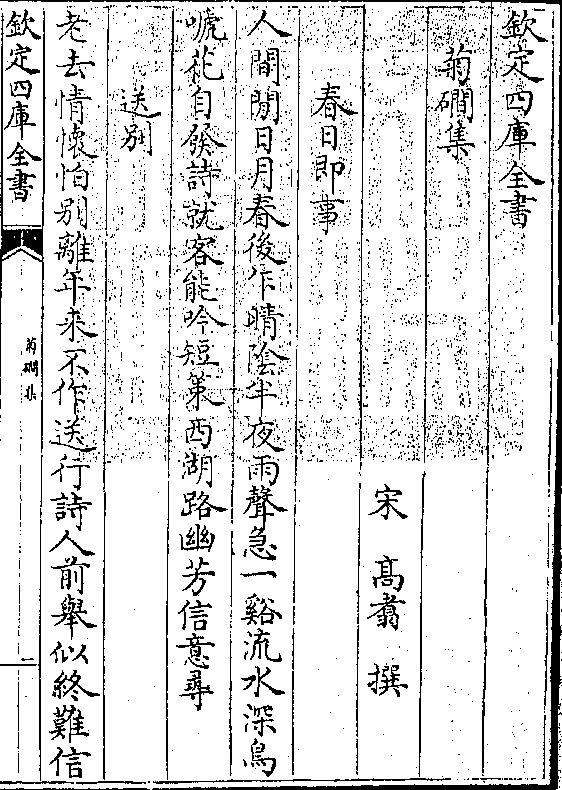 欽定四庫全書
菊磵集
宋 高翥 撰
春日即事
人間閒日月春後乍晴陰半夜雨聲急一谿流水深鳥
嗁花自發詩就客能吟短策西湖路幽芳信意尋
送別
老去情懷怕別離年來不作送行詩人前舉似終難信
欽定四庫全書
菊磵集
一